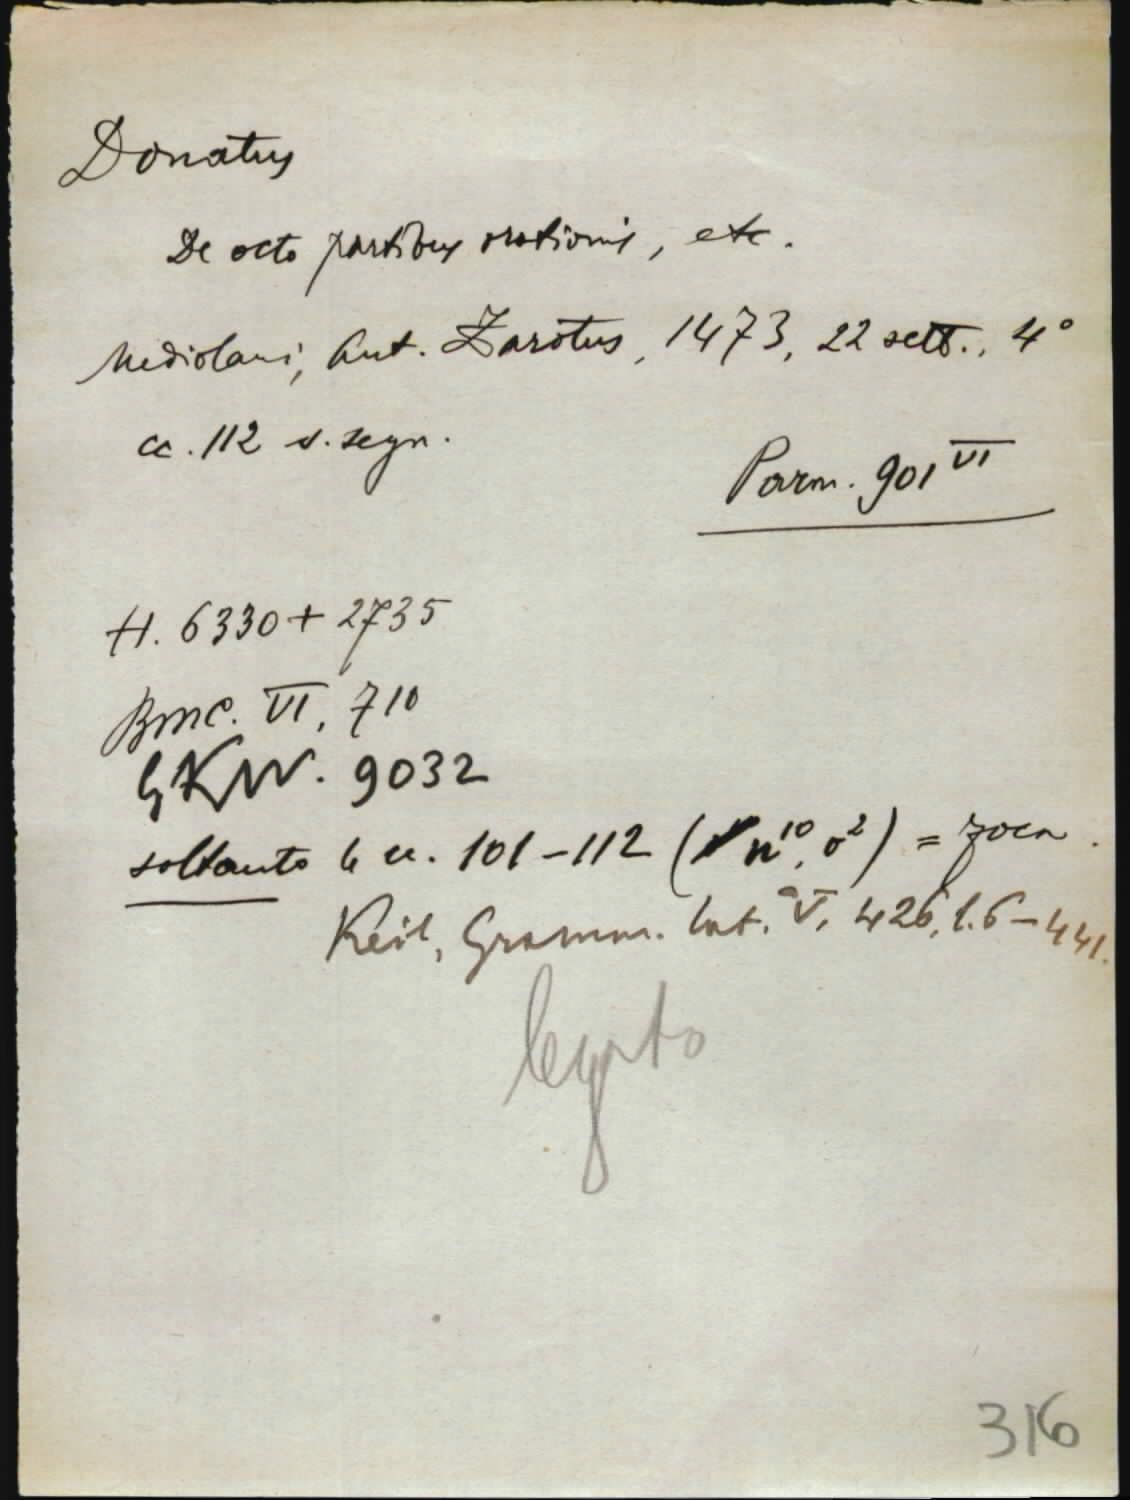 Donatus
De octo partibus orationis, etc.
Mediolani, Ant. Zarotus, 1473, 22 sett., 4°
cc. 112 s. segn.
Parm. 901 VI
H. 6330 + 2735
BMC. VI, 710
GKW. 9032
soltanto le cc. 101-112 (n¹⁰, o²) =
Keil, Gramm. lat. V, 426, l. 6 - 441.
316